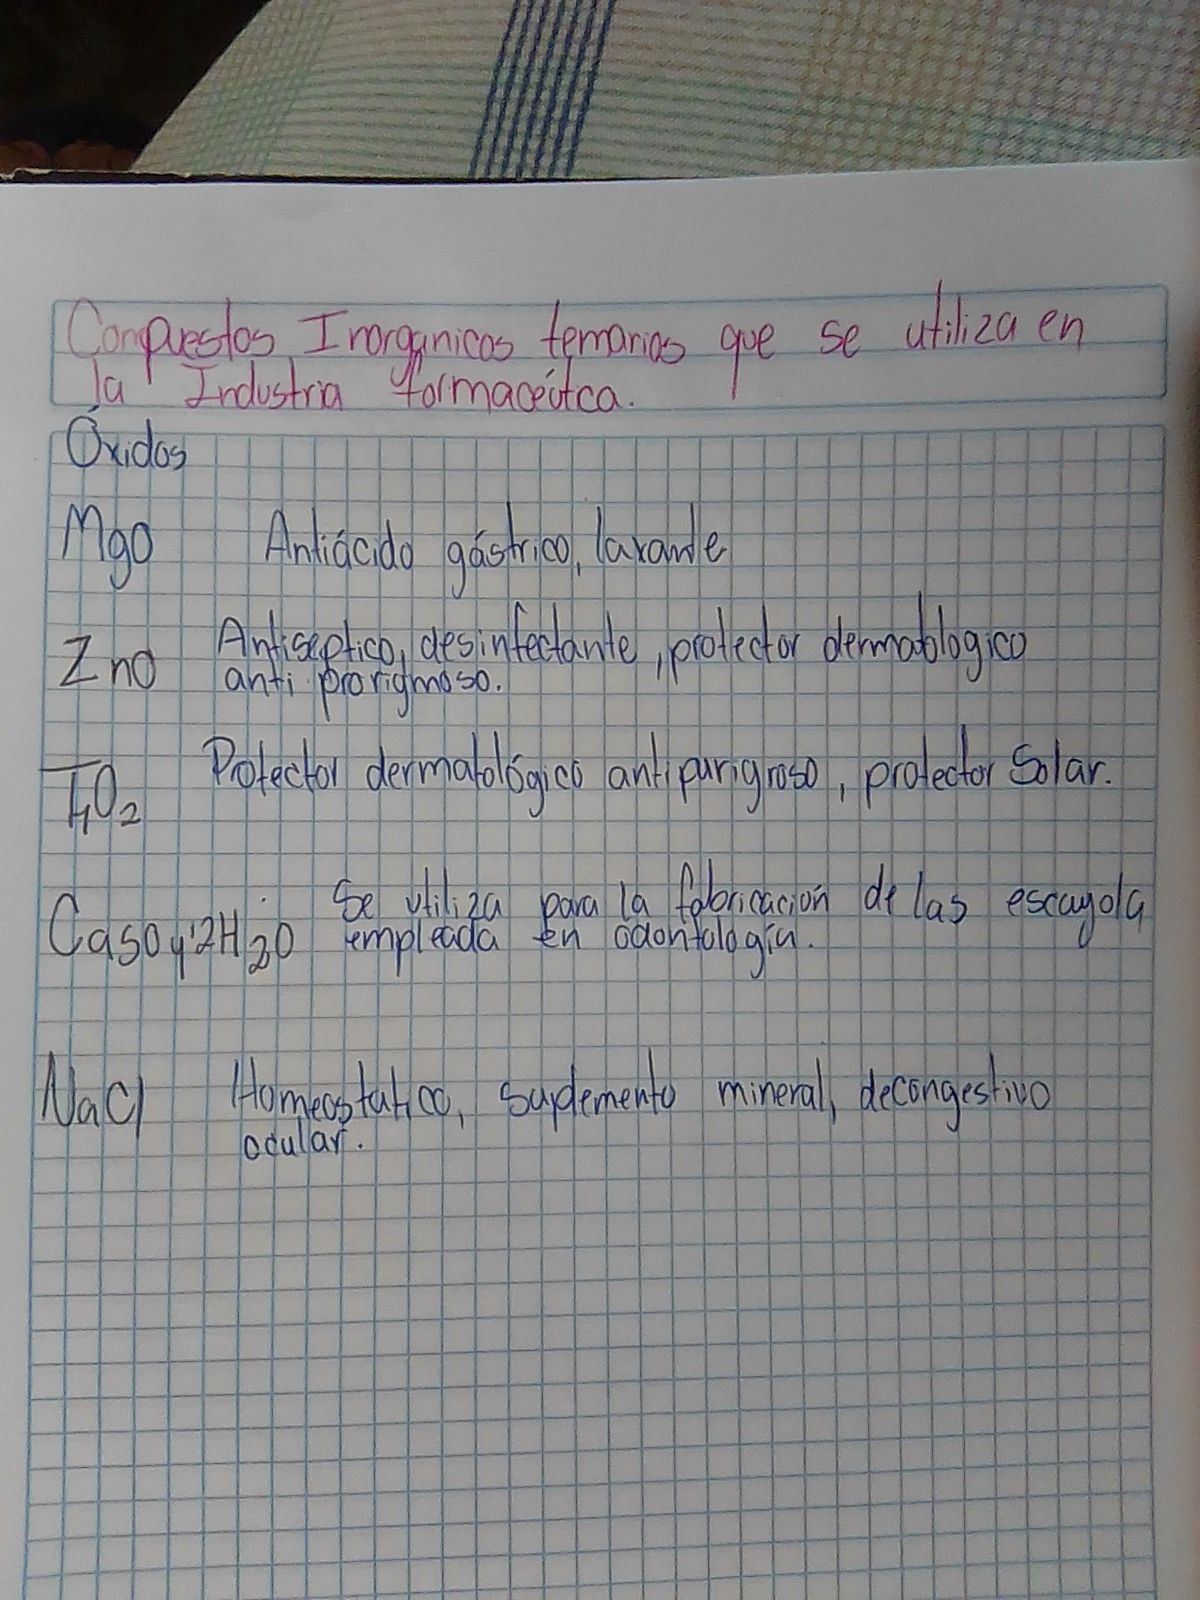 Compuestos Inorgánicos ternarios que se utiliza en
la Industria formacéutca.
Óxidos
MgO Antiácido gástrico, laxante
ZnO Antiseptico, desinfectante, protector dermatologico
anti prorigmoso.
TiO2 Protector dermatológico antipurigroso, protector Solar.
CaSO4·2H2O Se utiliza para la fabricación de las escayola
empleada en odontología.
NaCl Homeostatico, suplemento mineral, decongestivo
ocular.